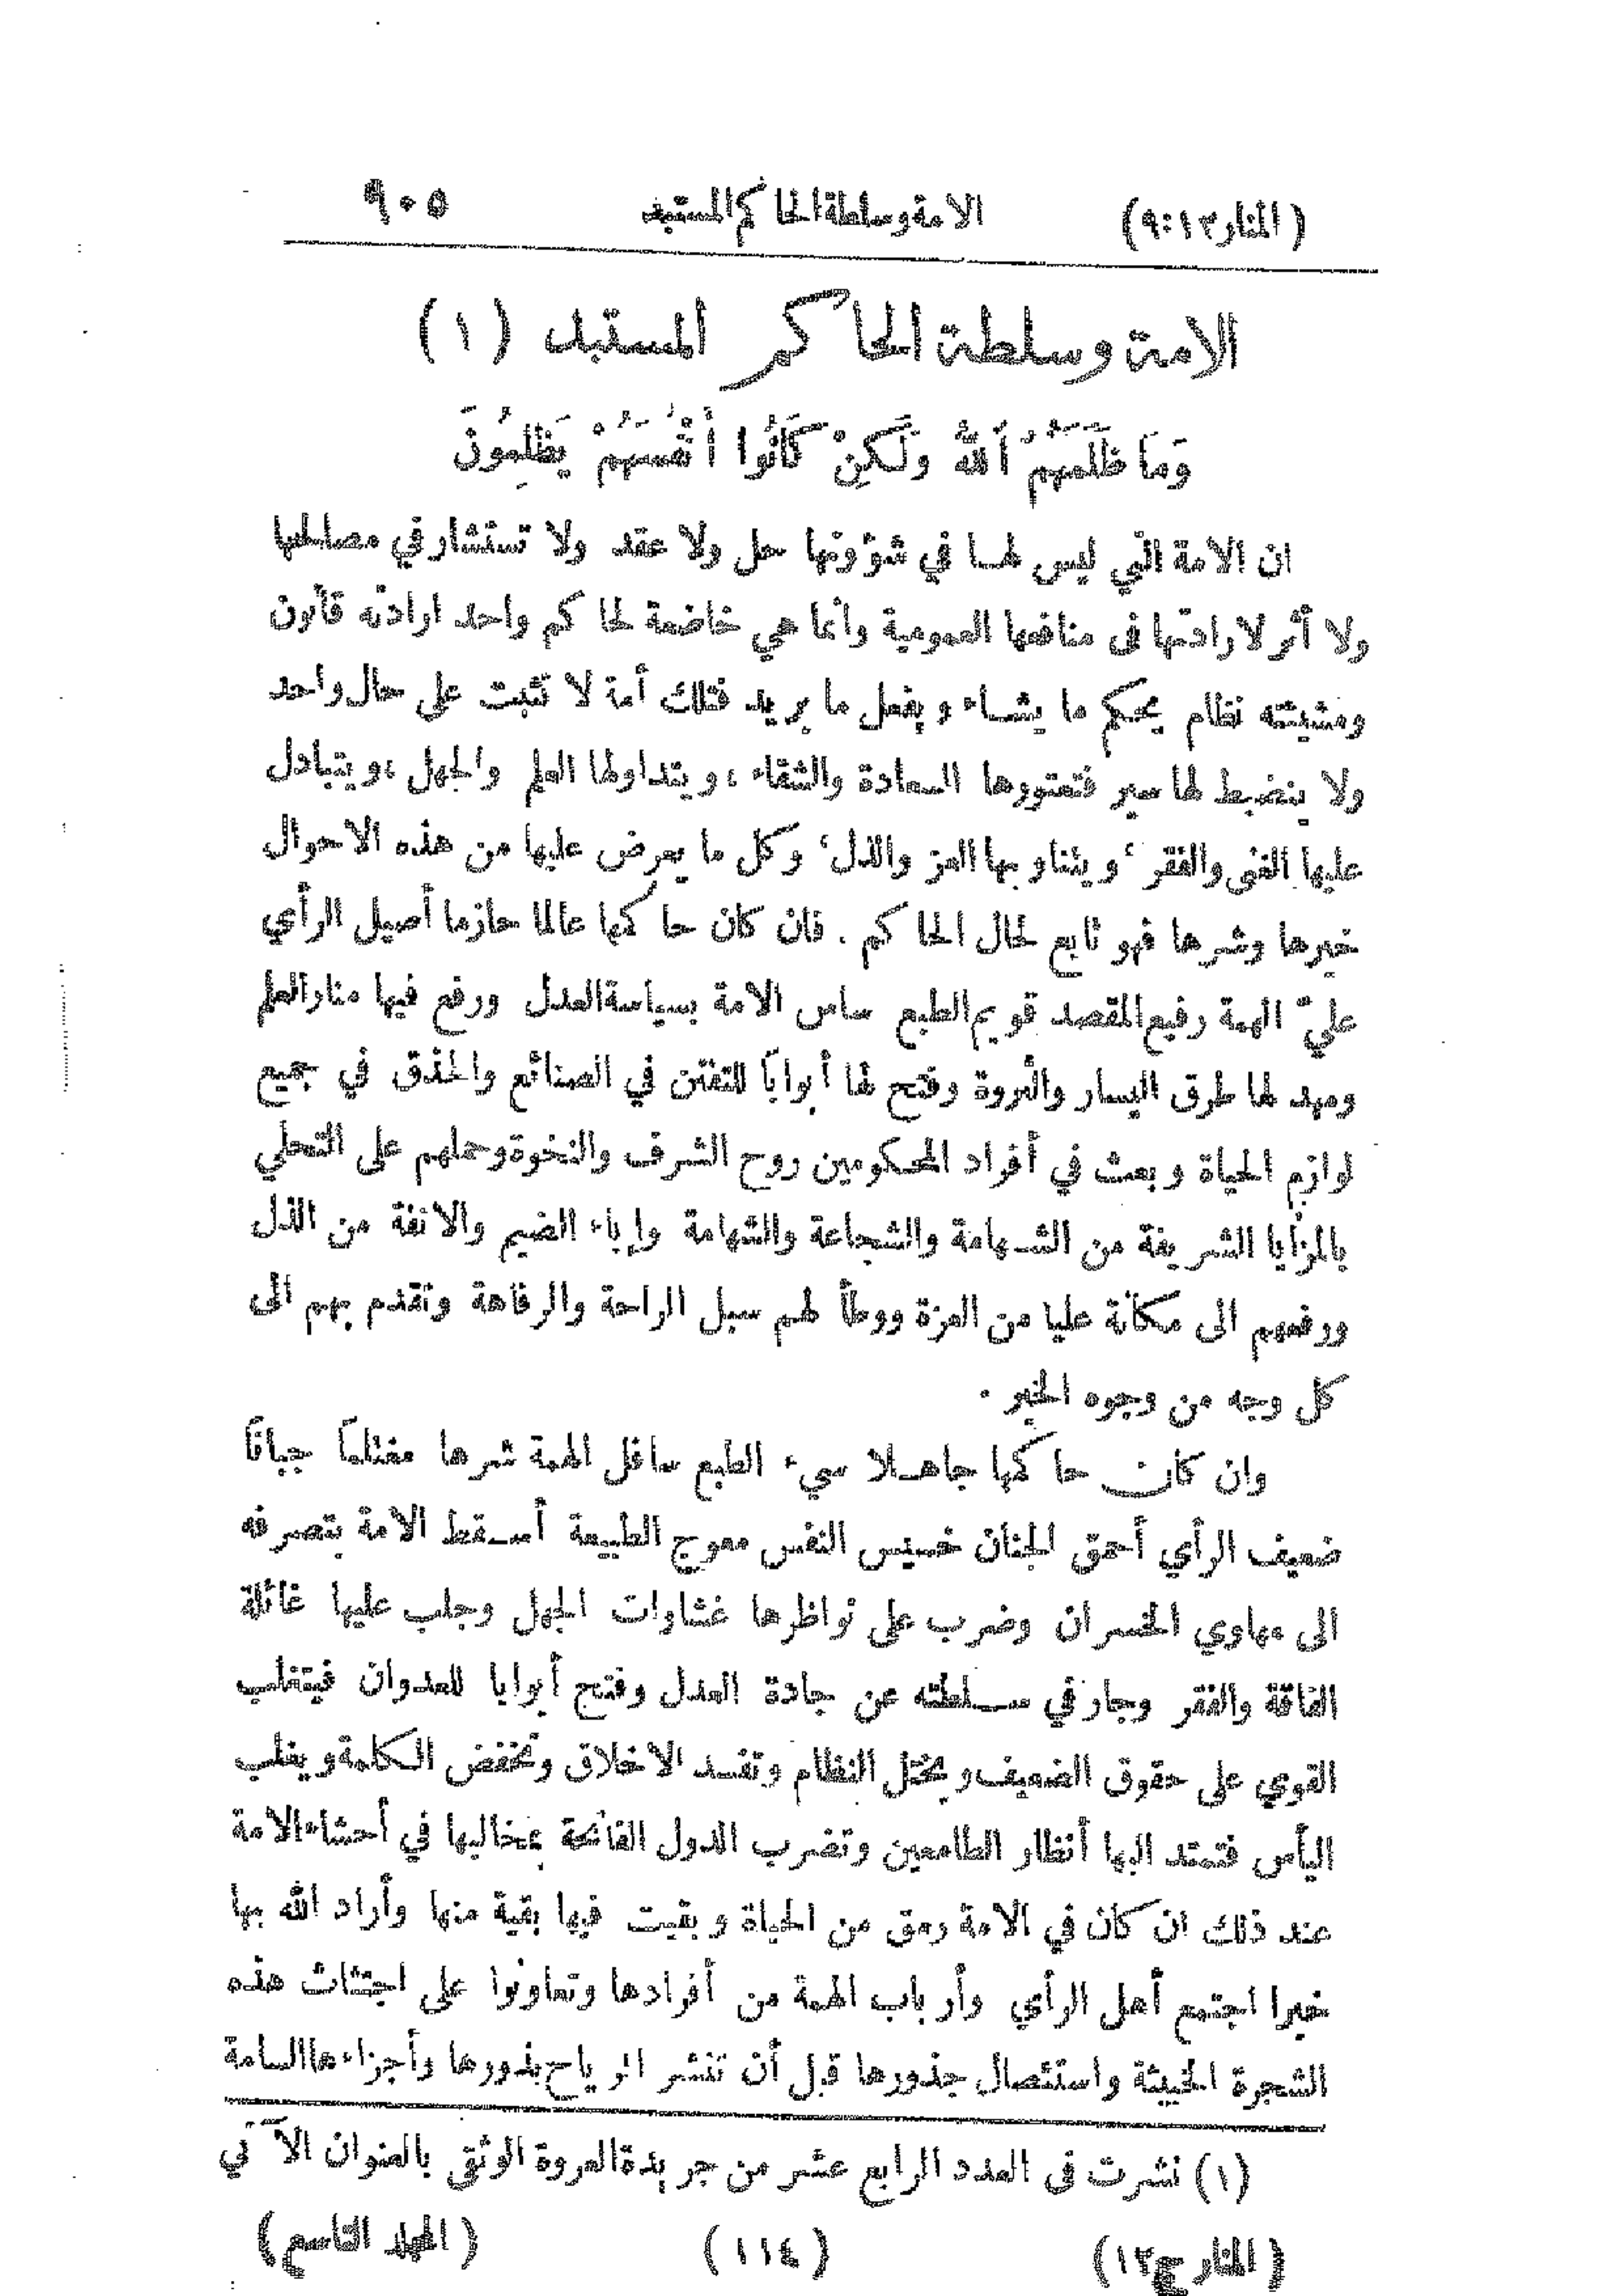 (المنار ١٢ : ٩) الامة وسلطة الحاكم المستبد ٩٠٥
الامة وسلطة الحاكم المستبد (١)
وَمَا ظَلَمَهُمُ ٱللهُ وَلَكِنْ كَانُوا أَنْفُسَهُمْ يَظْلِمُونَ
ان الامة التي ليس لها في شؤونها حل ولا عقد ولا تستشار في مصالحها
ولا أثر لارادتها فى منافعها العمومية وانما هي خاضعة لحاكم واحد ارادته قانون
ومشيئته نظام يحكم ما يشاء ويفعل ما يريد فتلك أمة لا تثبت على حال واحد
ولا ينضبط لها سير فتعتورها السعادة والشقاء ، ويتداولها العلم والجهل ، ويتبادل
عليها الغنى والفقر ، ويتناوبها العز والذل ، وكل ما يعرض عليها من هذه الاحوال
خيرها وشرها فهو تابع لحال الحاكم . فان كان حاكمها عالما حازما أصيل الرأي
عليّ الهمة رفيع المقصد قويم الطبع ساس الامة بسياسة العدل ورفع فيها منار العلم
ومهد لها طرق اليسار والثروة وفتح لها أبواباً للتفنن في الصنائع والحذق في جميع
لوازم الحياة وبعث في أفراد المحكومين روح الشرف والنخوة وحملهم على التحلي
بالمزايا الشريفة من الشهامة والشجاعة والشهامة وإباء الضيم والانفة من الذل
ورفعهم الى مكانة عليا من العزة ووطأ لهم سبل الراحة والرفاهة وتقدم بهم الى
كل وجه من وجوه الخير .
وان كان حاكمها جاهلا سيء الطبع سافل الهمة شرها مغتلماً جباناً
ضعيف الرأي أحمق الجنان خسيس النفس معوج الطبيعة أسقط الامة بتصرفه
الى مهاوي الخسران وضرب على نواظرها غشاوات الجهل وجلب عليها غائلة
الفاقة والفقر وجار في سلطته عن جادة العدل وفتح أبوابا للعدوان فيتغلب
القوي على حقوق الضعيف ويختل النظام وتفسد الاخلاق وتخفض الكلمة ويغلب
اليأس فتمتد اليها أنظار الطامعين وتضرب الدول الفاتحة بمخاليها في أحشاء الامة
عند ذلك ان كان في الامة رمق من الحياة وبقيت فيها بقية منها وأراد الله بها
خيرا اجتمع أهل الرأي وأرباب الهمة من أفرادها وتعاونوا على اجتثاث هذه
الشجرة الخبيثة واستئصال جذورها قبل أن تنشر الرياح بذورها وأجزاءها السامة
(١) نشرت فى العدد الرابع عشر من جريدة العروة الوثقى بالعنوان الآتي
(المنار ج ١٢) (١١٤) (المجلد التاسع)